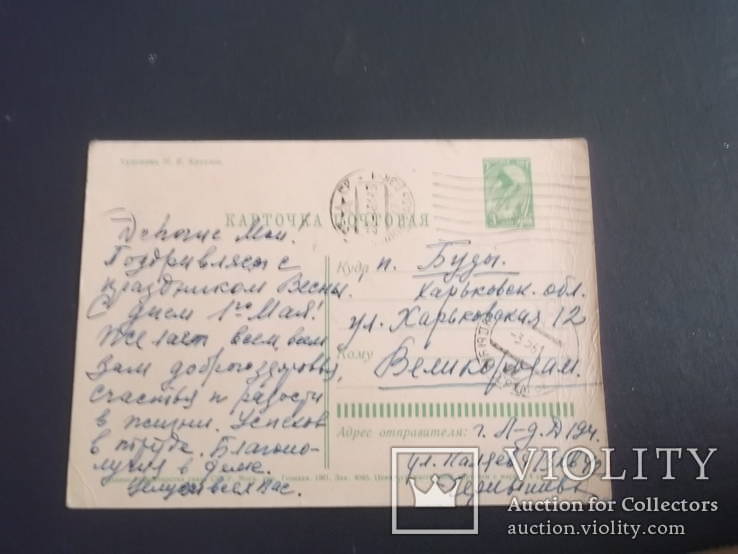 Художник
КАРТОЧКА ПОЧТОВАЯ
Дорогие Мои.
Поздравляем с
праздником Весны.
С днем 1го Мая!
Желаем всем, всем
Вам доброго здоровья,
счастья и радости
в жизни. Успехов
в труде. Благопо-
лучия в доме.
Целуем всех Вас.
Куда п. Буды.
Харьковск. обл.
ул. Харьковская 12
Кому
Великородам.
Адрес отправителя: г. Л-д. Д 194.
ул.
1961. Зак.
VIOLITY
Auction for Collectors
auction.violity.com